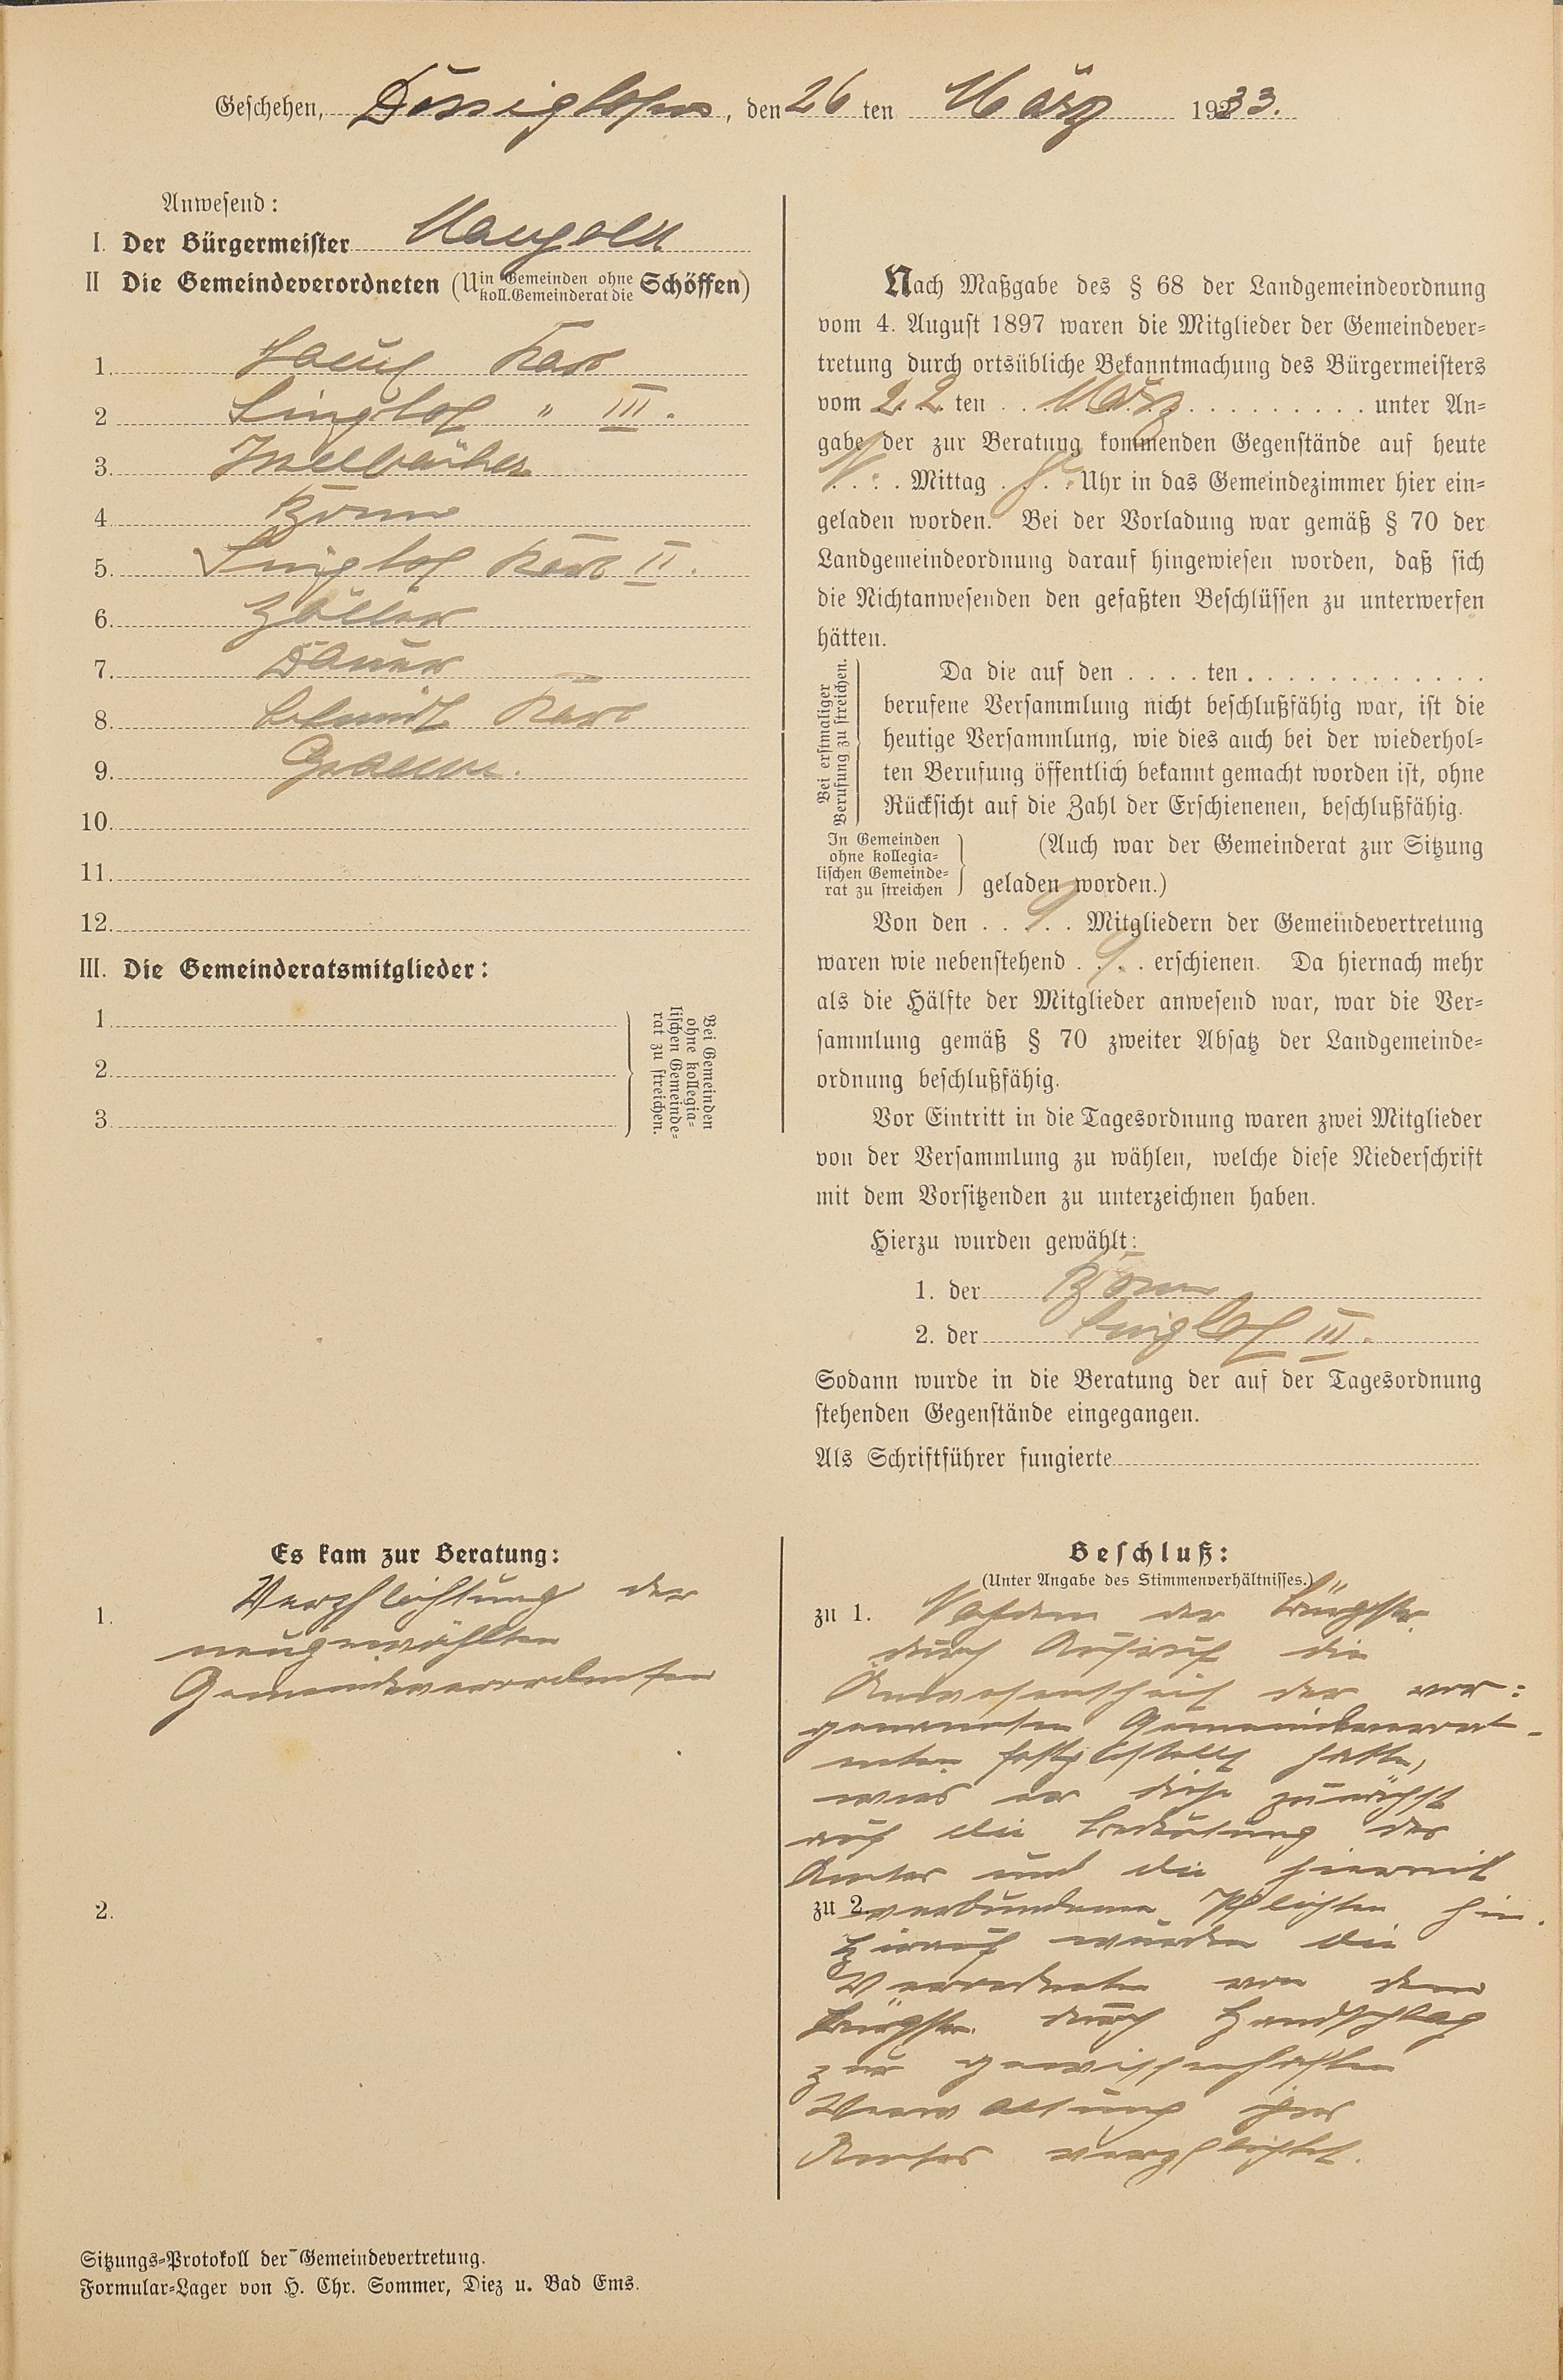 Geschehen, , den 26 ten März 1933.
Anwesend:
I. Der Bürgermeister Mangold
II Die Gemeindeverordneten (U in Gemeinden ohne koll. Gemeinderat die Schöffen)
1. Karl
2 " III.
3.
4
5. Karl II.
6. Zöller
7.
8. Schmidt Karl
9.
10.
11.
12.
III. Die Gemeinderatsmitglieder:
1
2
3
Bei Gemeinden
ohne kollegia-
lischen Gemeinde-
rat zu streichen.
Nach Maßgabe des § 68 der Landgemeindeordnung
vom 4. August 1897 waren die Mitglieder der Gemeindever-
tretung durch ortsübliche Bekanntmachung des Bürgermeisters
vom 22 ten März unter An-
gabe der zur Beratung kommenden Gegenstände auf heute
N. Mittag Uhr in das Gemeindezimmer hier ein-
geladen worden. Bei der Vorladung war gemäß § 70 der
Landgemeindeordnung darauf hingewiesen worden, daß sich
die Nichtanwesenden den gefaßten Beschlüssen zu unterwerfen
hätten.
Bei erstmaliger
Berufung zu streichen.
Da die auf den . . . . ten . . . . . . . . . . . .
berufene Versammlung nicht beschlußfähig war, ist die
heutige Versammlung, wie dies auch bei der wiederhol-
ten Berufung öffentlich bekannt gemacht worden ist, ohne
Rücksicht auf die Zahl der Erschienenen, beschlußfähig.
In Gemeinden
ohne kollegia-
lischen Gemeinde-
rat zu streichen
(Auch war der Gemeinderat zur Sitzung
geladen worden.)
Von den . . 9 . . Mitgliedern der Gemeindevertretung
waren wie nebenstehend . 9 . . erschienen. Da hiernach mehr
als die Hälfte der Mitglieder anwesend war, war die Ver-
sammlung gemäß § 70 zweiter Absatz der Landgemeinde-
ordnung beschlußfähig.
Vor Eintritt in die Tagesordnung waren zwei Mitglieder
von der Versammlung zu wählen, welche diese Niederschrift
mit dem Vorsitzenden zu unterzeichnen haben.
Hierzu wurden gewählt:
1. der
2. der III.
Sodann wurde in die Beratung der auf der Tagesordnung
stehenden Gegenstände eingegangen.
Als Schriftführer fungierte
Es kam zur Beratung:
1. Verpflichtung der
neugewählten
Gemeindeverordneten
2.
Beschluß:
(Unter Angabe des Stimmenverhältnisses.)
zu 1. Nachdem der Bürgstr.
durch Aufruf die
Anwesenheit der vor-
genannten Gemeindeverord-
neten festgestellt hatte,
wies er diese zunächst
auf die Bedeutung des
Amtes und die hiermit
zu 2. verbundenen Pflichten hin.
Hierauf wurden die
Verordneten von dem
Bürgstr. durch Handschlag
zur gewissenhaften
Verwaltung ihres
Amtes verpflichtet.
Sitzungs-Protokoll der Gemeindevertretung.
Formular-Lager von H. Chr. Sommer, Diez u. Bad Ems.